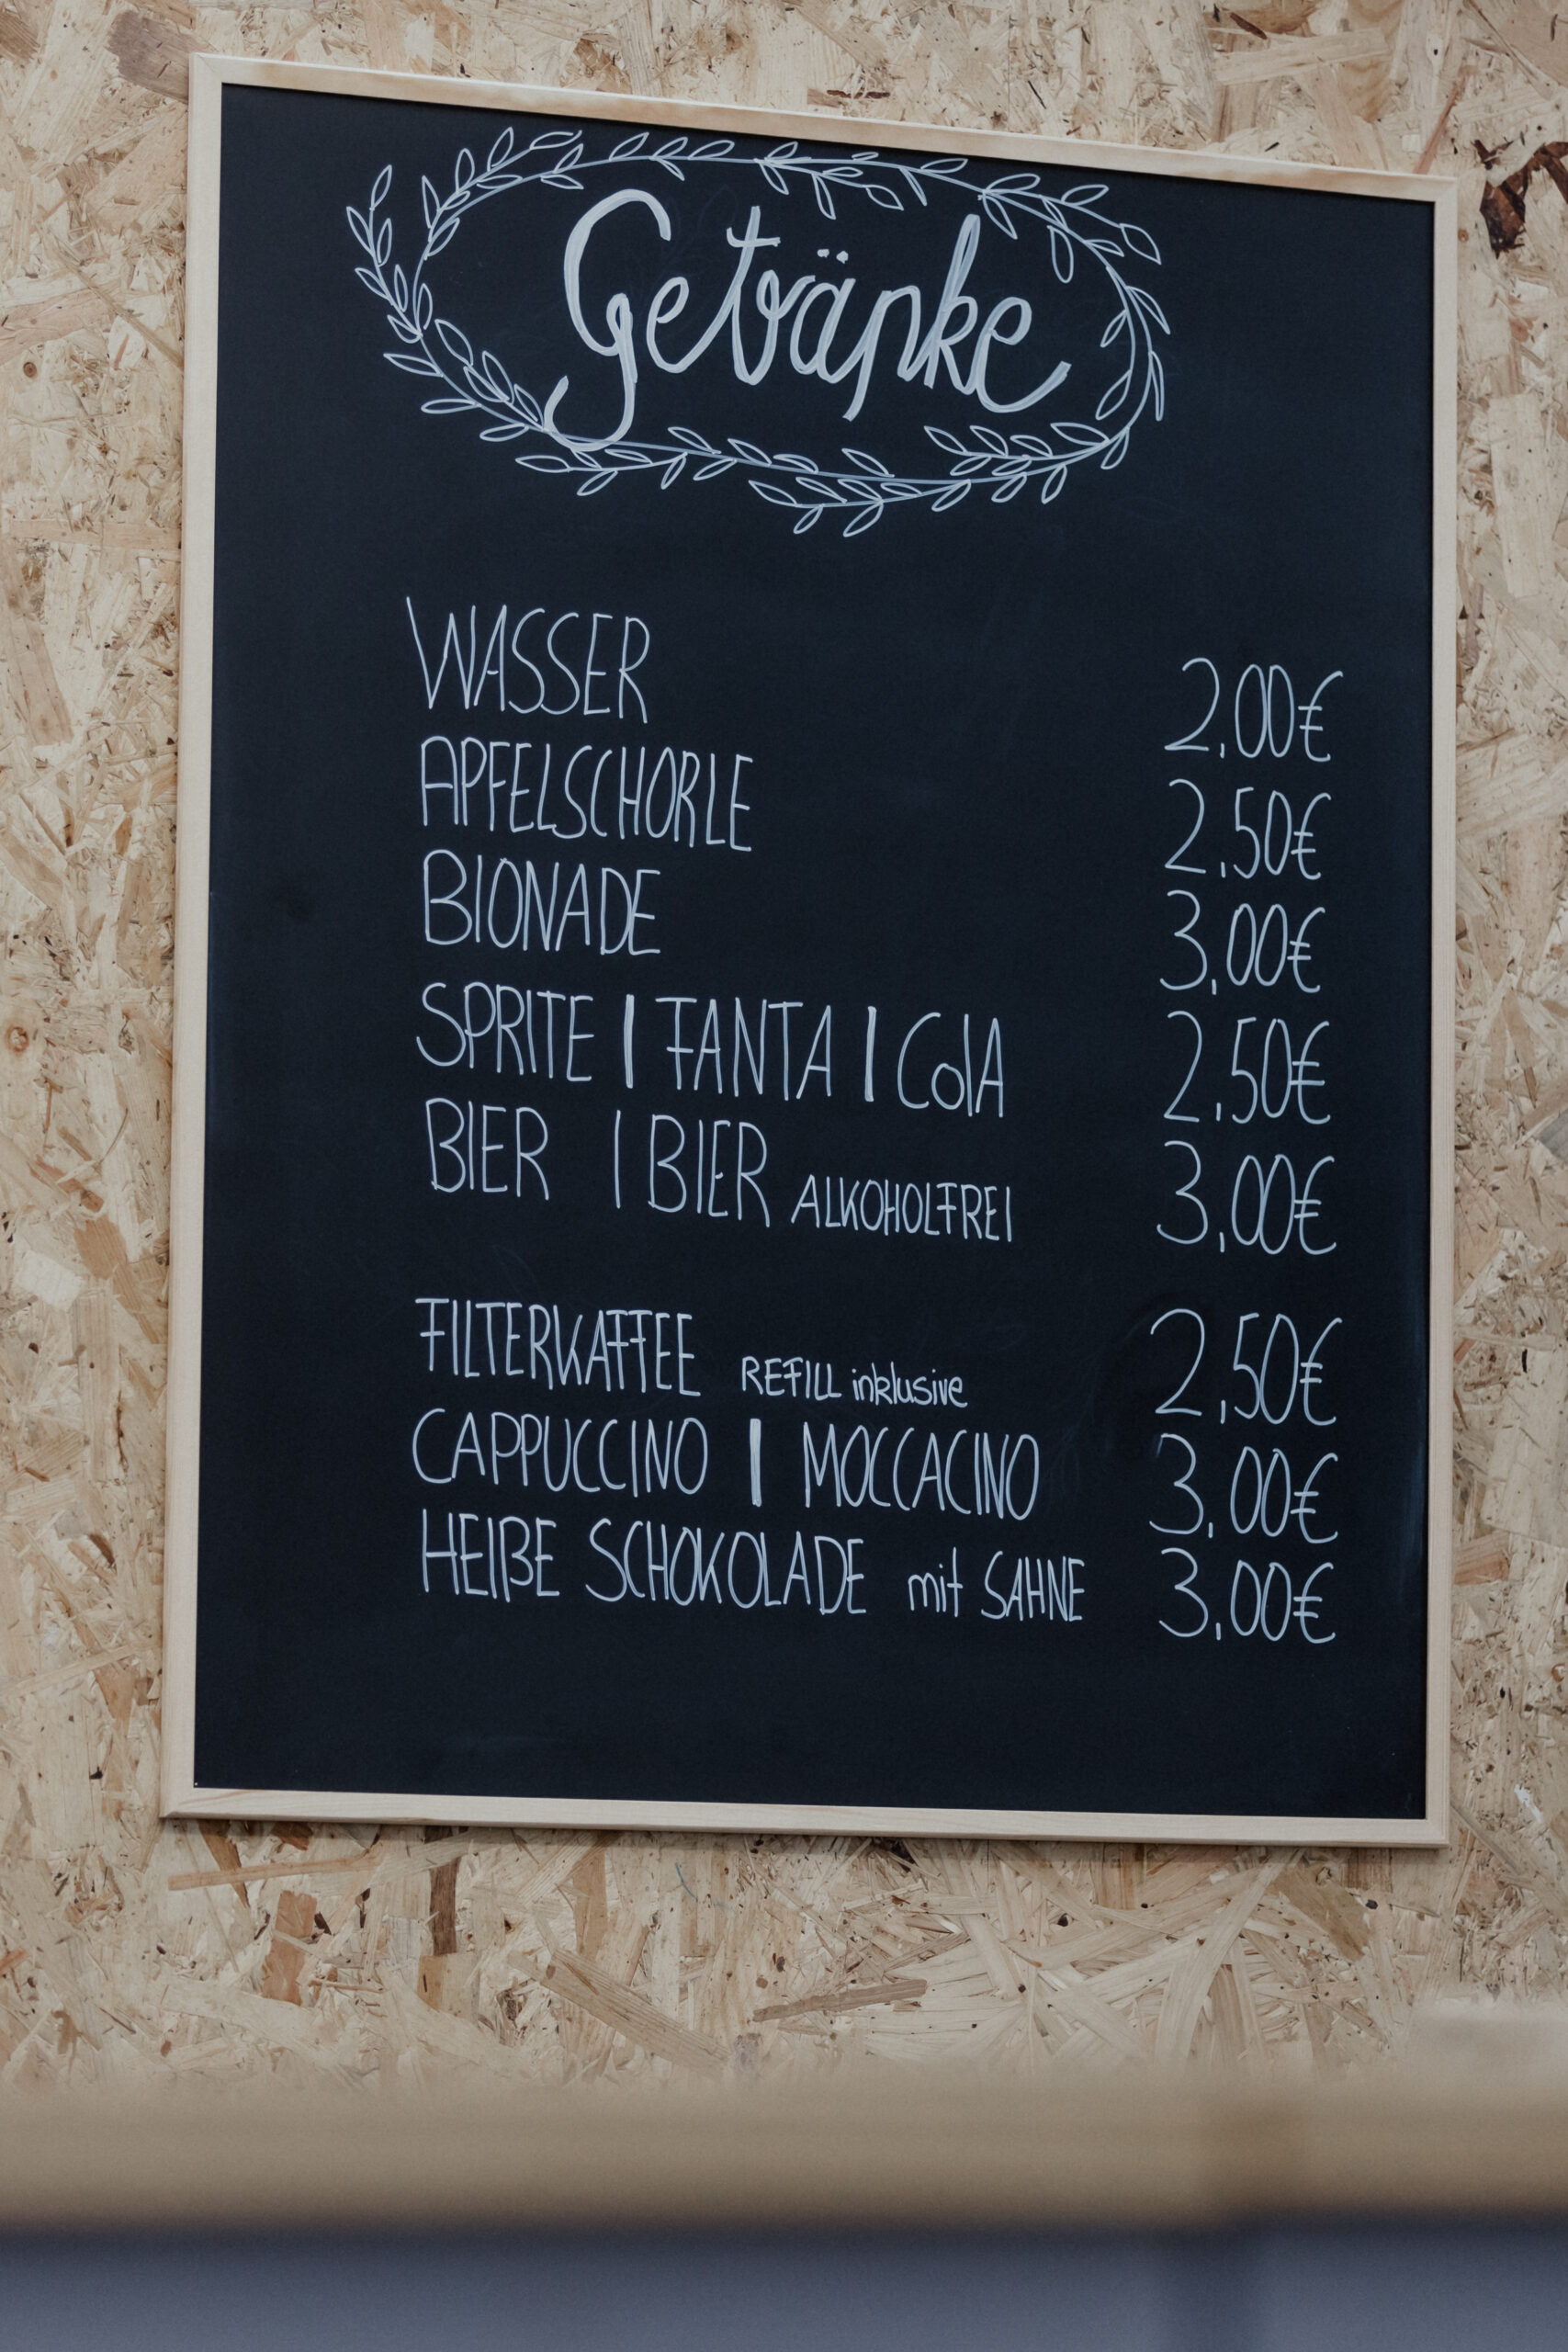 Getränke
WASSER 2,00€
APFELSCHORLE 2,50€
BIONADE 3,00€
SPRITE | FANTA | ColA 2,50€
BIER | BIER ALKOHOLFREI 3,00€
FILTERKAFFEE REFILL inklusive 2,50€
CAPPUCCINO | MOCCACINO 3,00€
HEIßE SCHOKOLADE mit SAHNE 3,00€